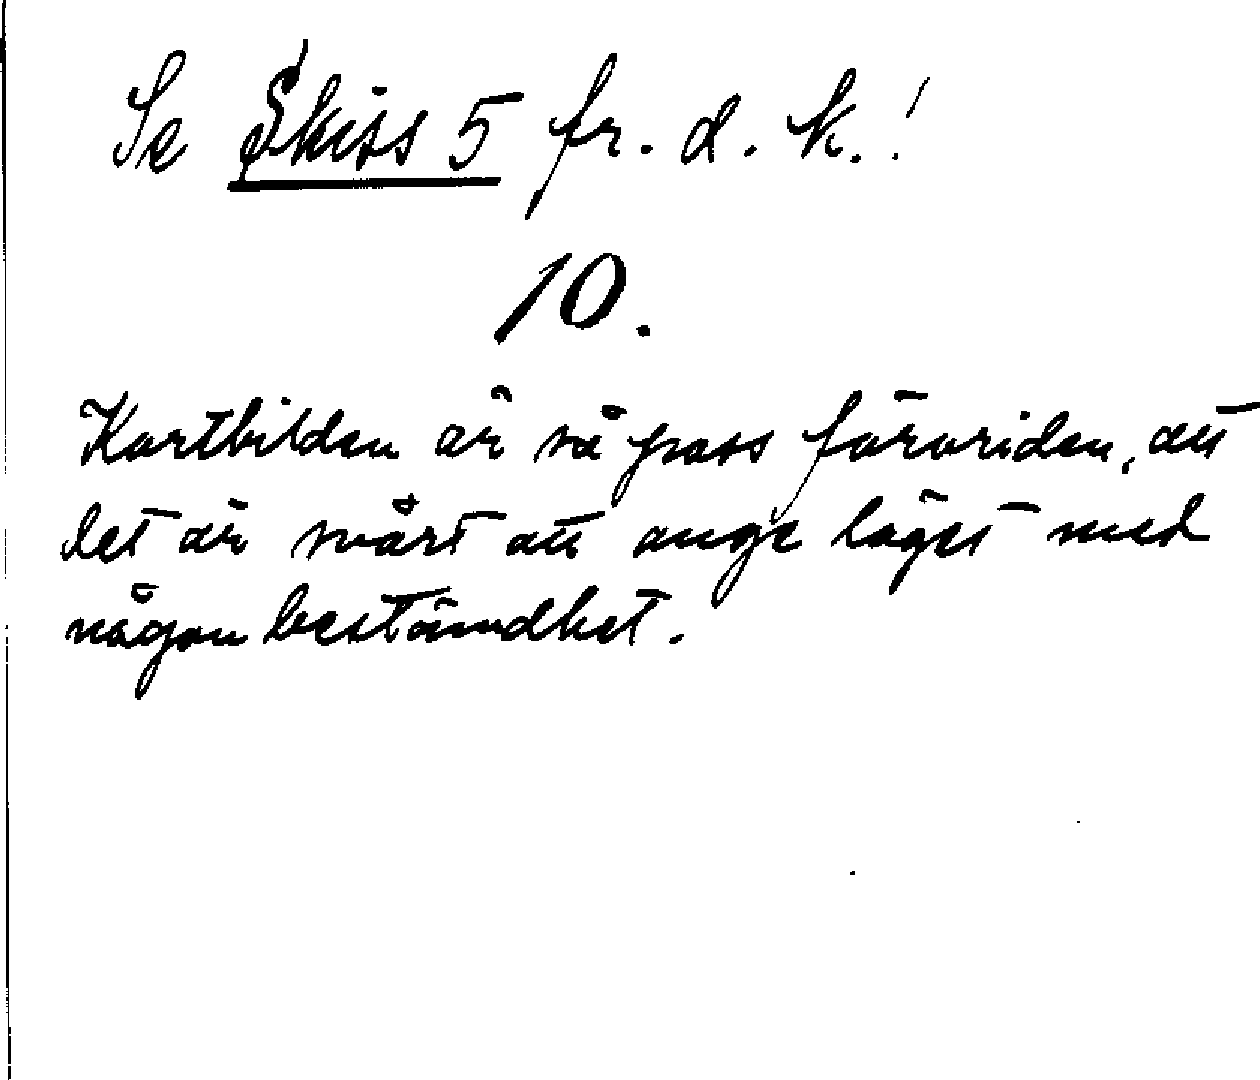 Se Skiss 5 fr. d. k.!
10.
Kartbilden är så pass förvriden, att
det är svårt att ange läget med
någon bestämdhet.